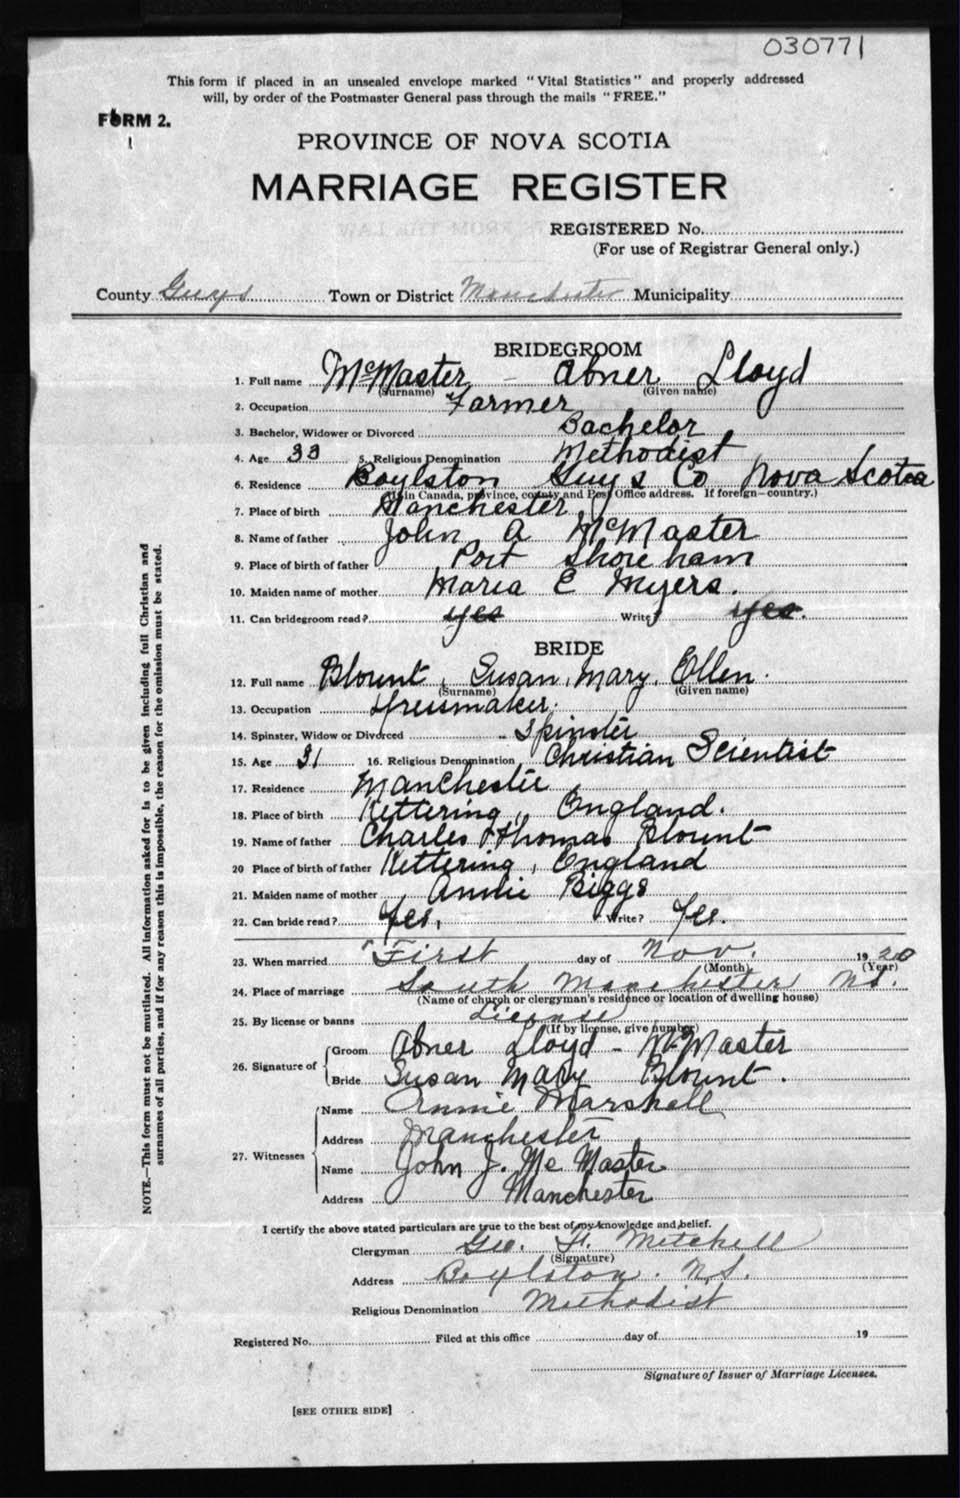 030771
This form if placed in an unsealed envelope marked "Vital Statistics" and properly addressed
will, by order of the Postmaster General pass through the mails "FREE."
FORM 2.
1
PROVINCE OF NOVA SCOTIA
MARRIAGE REGISTER
REGISTERED No.
(For use of Registrar General only.)
County Guys Town or District Manchester Municipality
BRIDEGROOM
1. Full name McMaster - Abner Lloyd
(Surname) (Given name)
2. Occupation Farmer
3. Bachelor, Widower or Divorced Bachelor
4. Age 33 5. Religious Denomination Methodist
6. Residence Boylston Guys Co Nova Scotia
(If in Canada, province, county and Post Office address. If foreign—country.)
7. Place of birth Manchester
8. Name of father John A McMaster
9. Place of birth of father Port Shoreham
10. Maiden name of mother Maria E Myers.
11. Can bridegroom read? yes Write? yes.
BRIDE
12. Full name Blount, Susan, Mary, Ellen.
(Surname) (Given name)
13. Occupation Dressmaker.
14. Spinster, Widow or Divorced - Spinster
15. Age 31 16. Religious Denomination Christian Scientist
17. Residence Manchester
18. Place of birth Kettering, England.
19. Name of father Charles Thomas Blount
20 Place of birth of father Kettering, England
21. Maiden name of mother Annie Biggs
22. Can bride read? Yes. Write? Yes.
23. When married First day of Nov. 1920
(Month) (Year)
24. Place of marriage South Manchester N.S.
(Name of church or clergyman's residence or location of dwelling house)
25. By license or banns License
(If by license, give number)
26. Signature of Groom Abner Lloyd - McMaster
Bride Susan Mary Blount.
27. Witnesses Name Annie Marshall
Address Manchester
Name John J. Mc Master
Address Manchester
I certify the above stated particulars are true to the best of my knowledge and belief.
Clergyman Geo. Mitchell
(Signature)
Address Boylston. N.S.
Religious Denomination Methodist
Registered No. Filed at this office day of 19
Signature of Issuer of Marriage Licenses.
[SEE OTHER SIDE]
NOTE.—This form must not be mutilated. All information asked for is to be given including full Christian and
surnames of all parties, and if for any reason this is impossible, the reason for the omission must be stated.